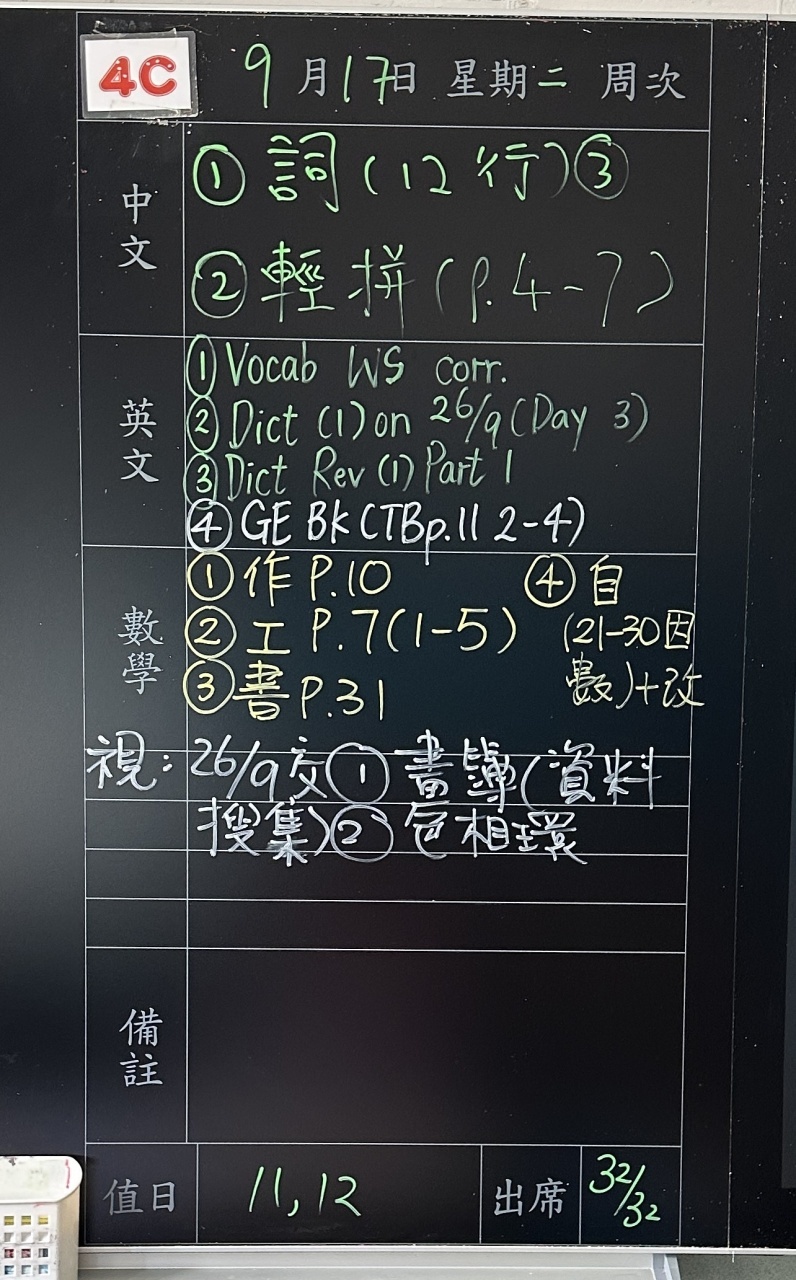 4C 9月17日 星期二 周次
中文
①詞(12行)③
②輕拼(P.4-7)
英文
①Vocab WS corr.
②Dict (1) on 26/9 (Day 3)
③Dict Rev (1) Part 1
④GE BK (TBp.11 2-4)
數學
①作P.10
②工P.7(1-5)
③書P.31
④自
(21-30因
數)+改
視: 26/9交①畫簿(資料
搜集)②色相環
備註
值日 11,12 出席 32/32